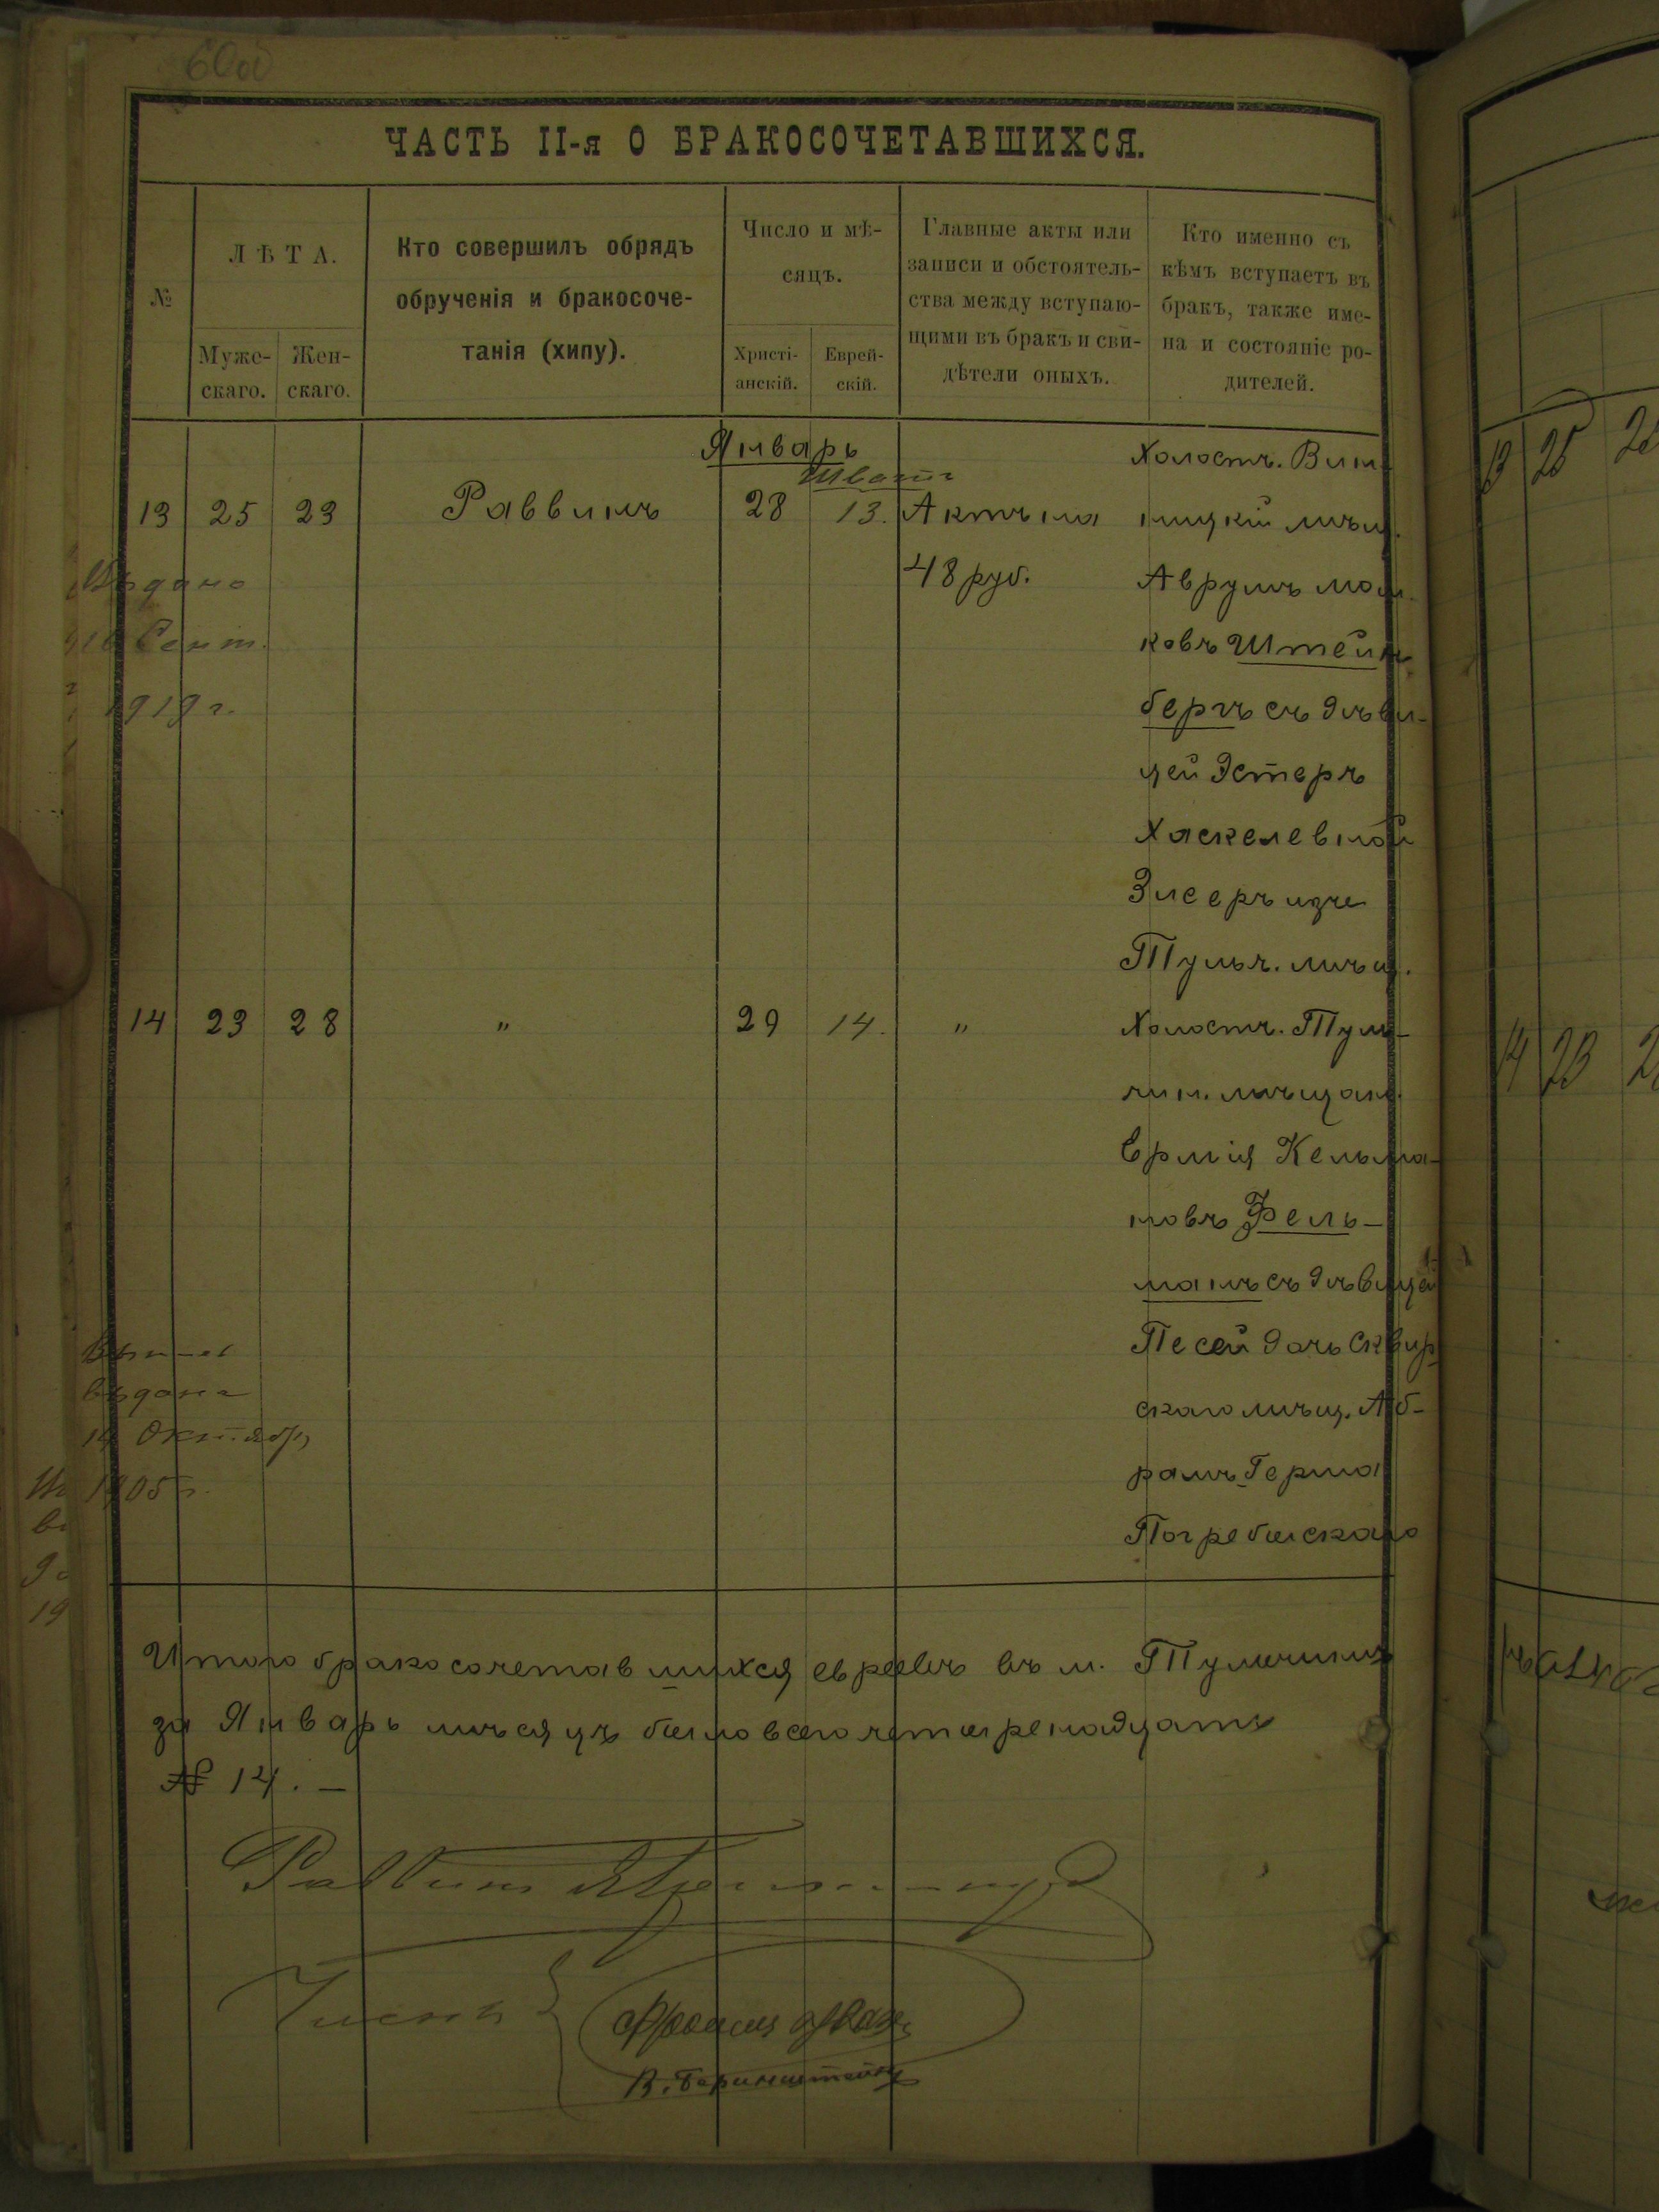 60об
ЧАСТЬ II-я О БРАКОСОЧЕТАВШИХСЯ.
№
ЛѢТА.
Муже-
скаго.
Жен-
скаго.
Кто совершилъ обрядъ
обрученія и бракосоче-
танія (хипу).
Число и мѣ-
сяцъ.
Христі-
анскій.
Еврей-
скій.
Главные акты или
записи и обстоятель-
ства между вступаю-
щими въ бракъ и сви-
дѣтели оныхъ.
Кто именно съ
кѣмъ вступаетъ въ
бракъ, также име-
на и состояніе ро-
дителей.
Январь
Шватъ
13 25 23 Раввинъ 28 13. Актъ на
48 руб.
Холост. Вин-
ницкій мѣщ.
Аврумъ Мош-
ковъ Штейн-
бергъ съ дѣви-
цей Эстеръ
Хаскелевной
Тульч. мѣщ.
Выдано
Сент.
1919 г.
14 23 28 " 29 14. "
Холост. Туль-
чин. мѣщан.
Ермія Кельма-
новъ Фель-
манъ съ дѣвицей
Песей дочь Сквир
скаго мѣщ. Аб-
рамъ Герша
Погребыскаго
выдана
14 Октября
1905 г.
Итого бракосочетавшихся евреевъ въ м. Тульчинѣ
за Январь мѣсяцъ было всего четыренадцать
№ 14. —
Раввинъ
Члены
В. Беринштейнъ
13 25
14 23